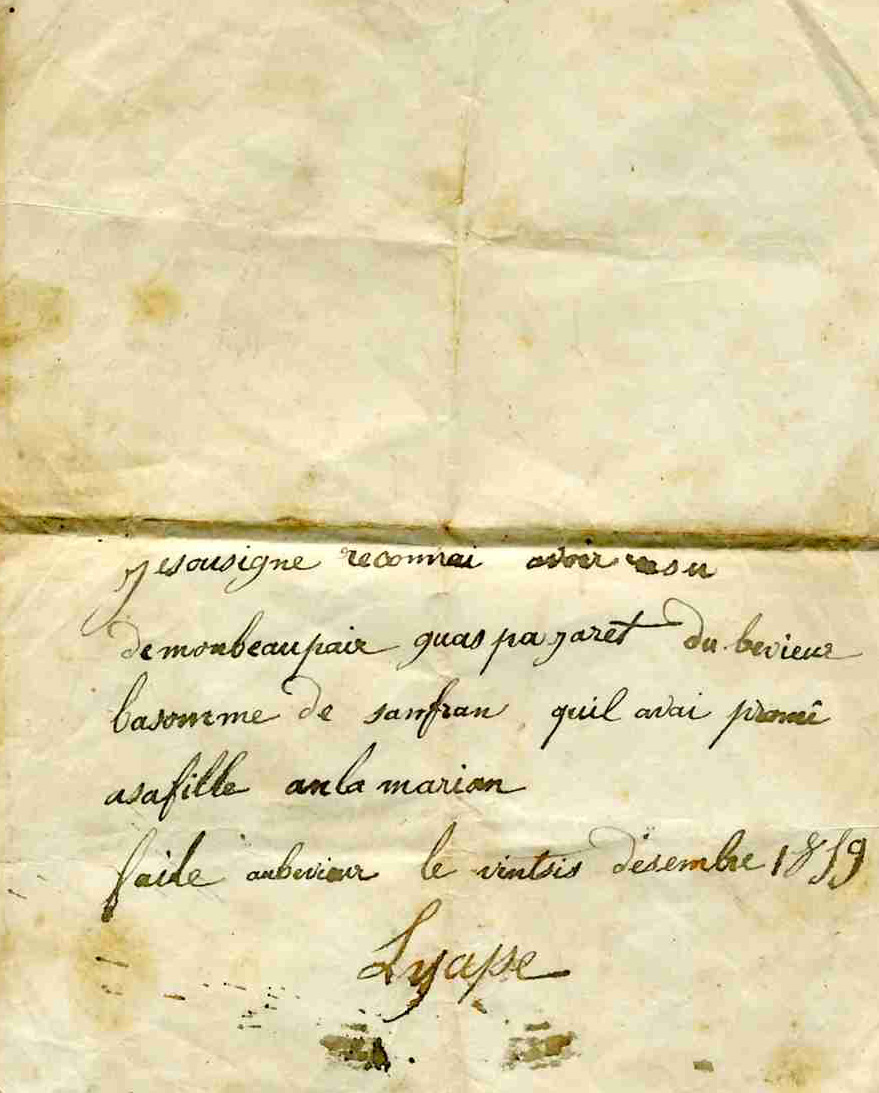 Jesousigne reconnai avoir resu
demonbeaupair guaspa jaret du bevieur
lasomme de sanfran quil avai promi
asafille anla marian
faite aubevieur le vintsis désembre 1859
Lyapse